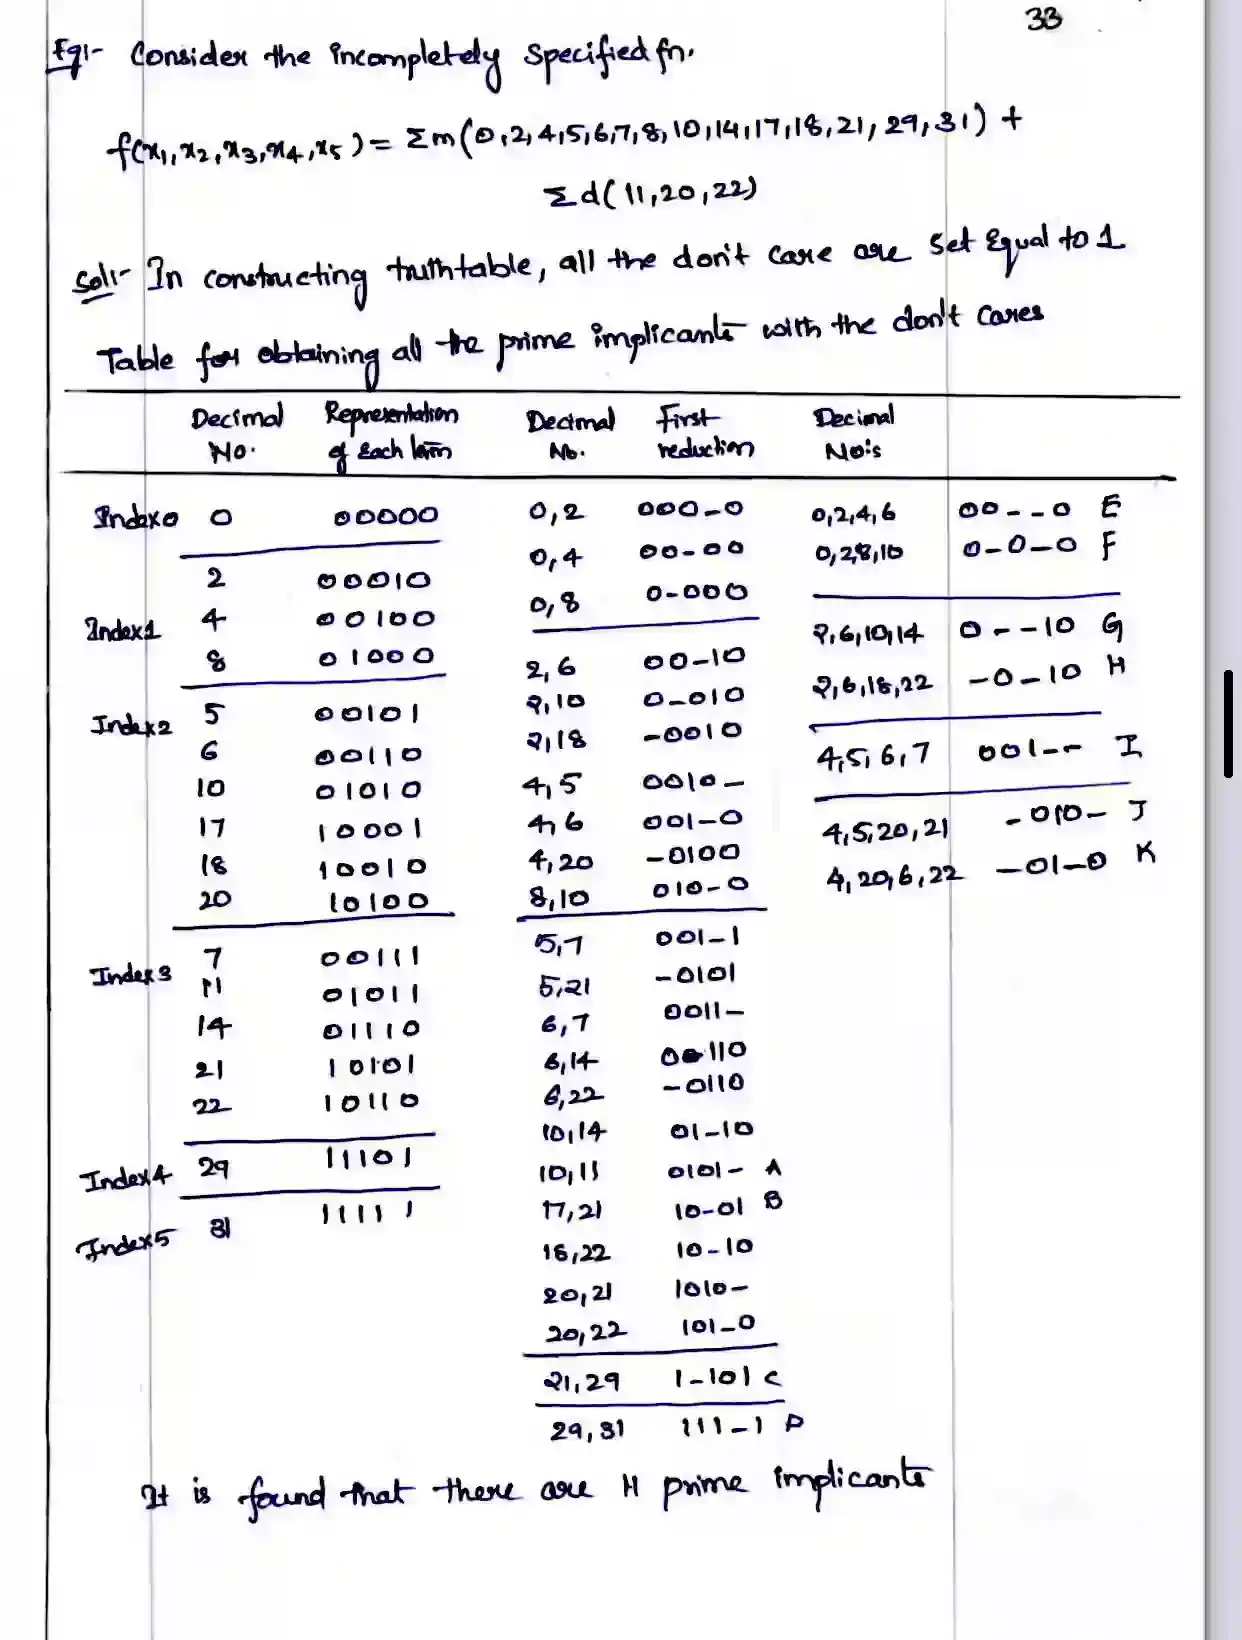 33
Eg:- Consider the incompletely specified fn.
f(x1,x2,x3,x4,x5) = Σm(0,2,4,5,6,7,8,10,14,17,18,21,29,31) +
Σd(11,20,22)
Sol:- In constructing truthtable, all the don't care are set equal to 1
Table for obtaining all the prime implicants with the don't cares
Decimal Representation Decimal First Decimal
No. of each term No. reduction No's
Index0 0 00000 0,2 000-0 0,2,4,6 00--0 E
0,4 00-00 0,2,8,10 0-0-0 F
2 00010 0,8 0-000
Index1 4 00100 2,6,10,14 0--10 G
8 01000 2,6 00-10 2,6,18,22 -0-10 H
Index2 5 00101 2,10 0-010
6 00110 2,18 -0010 4,5,6,7 001-- I
10 01010 4,5 0010-
17 10001 4,6 001-0 4,5,20,21 -010- J
18 10010 4,20 -0100 4,20,6,22 -01-0 K
20 10100 8,10 010-0
Index3 7 00111 5,7 001-1
11 01011 5,21 -0101
14 01110 6,7 0011-
21 10101 6,14 110
22 10110 6,22 -0110
10,14 01-10
Index4 29 11101 10,11 0101- A
Index5 31 11111 17,21 10-01 B
18,22 10-10
20,21 1010-
20,22 101-0
21,29 1-101 C
29,31 111-1 D
It is found that there are 11 prime implicants